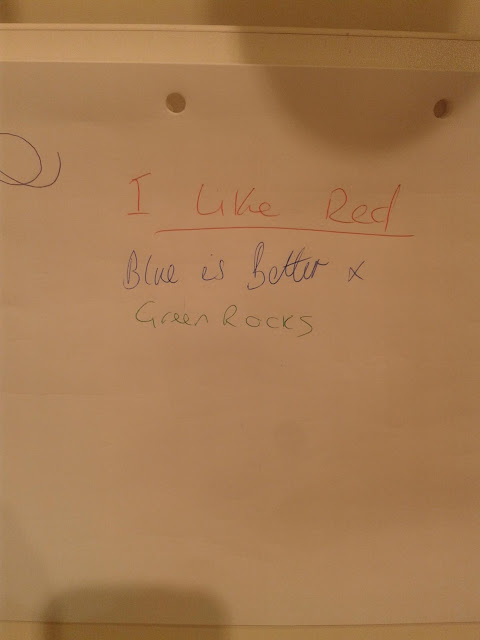 I Like Red
Blue is Better x
Green Rocks